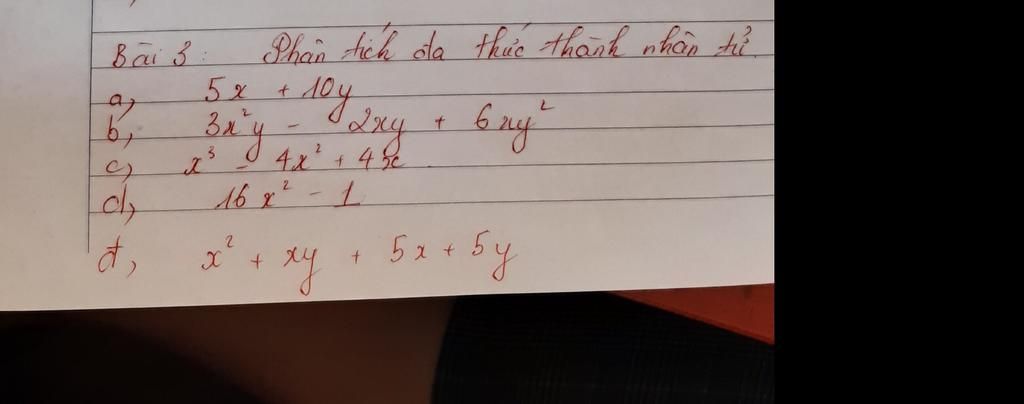 Bài 3: Phân tích đa thức thành nhân tử.
a, 5x + 10y
b, 3x²y - 2xy + 6xy²
c, x³ - 4x² + 4x
d, 16x² - 1
đ, x² + xy + 5x + 5y